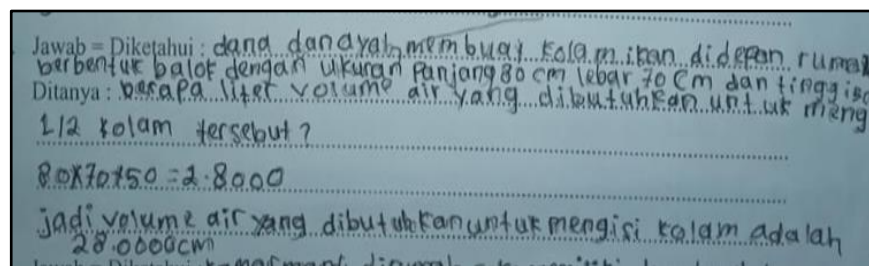 Jawab = Diketahui : dana dan ayah membuat kolam ikan didepan rumah
berbentuk balok dengan ukuran Panjang 80 cm lebar 70 cm dan tinggi 50
Ditanya : berapa liter volume air yang dibutuhkan untuk meng
1/2 kolam tersebut?
80x70x50 = 2.8000
jadi volume air yang dibutuhkan untuk mengisi kolam adalah
28.0000cm